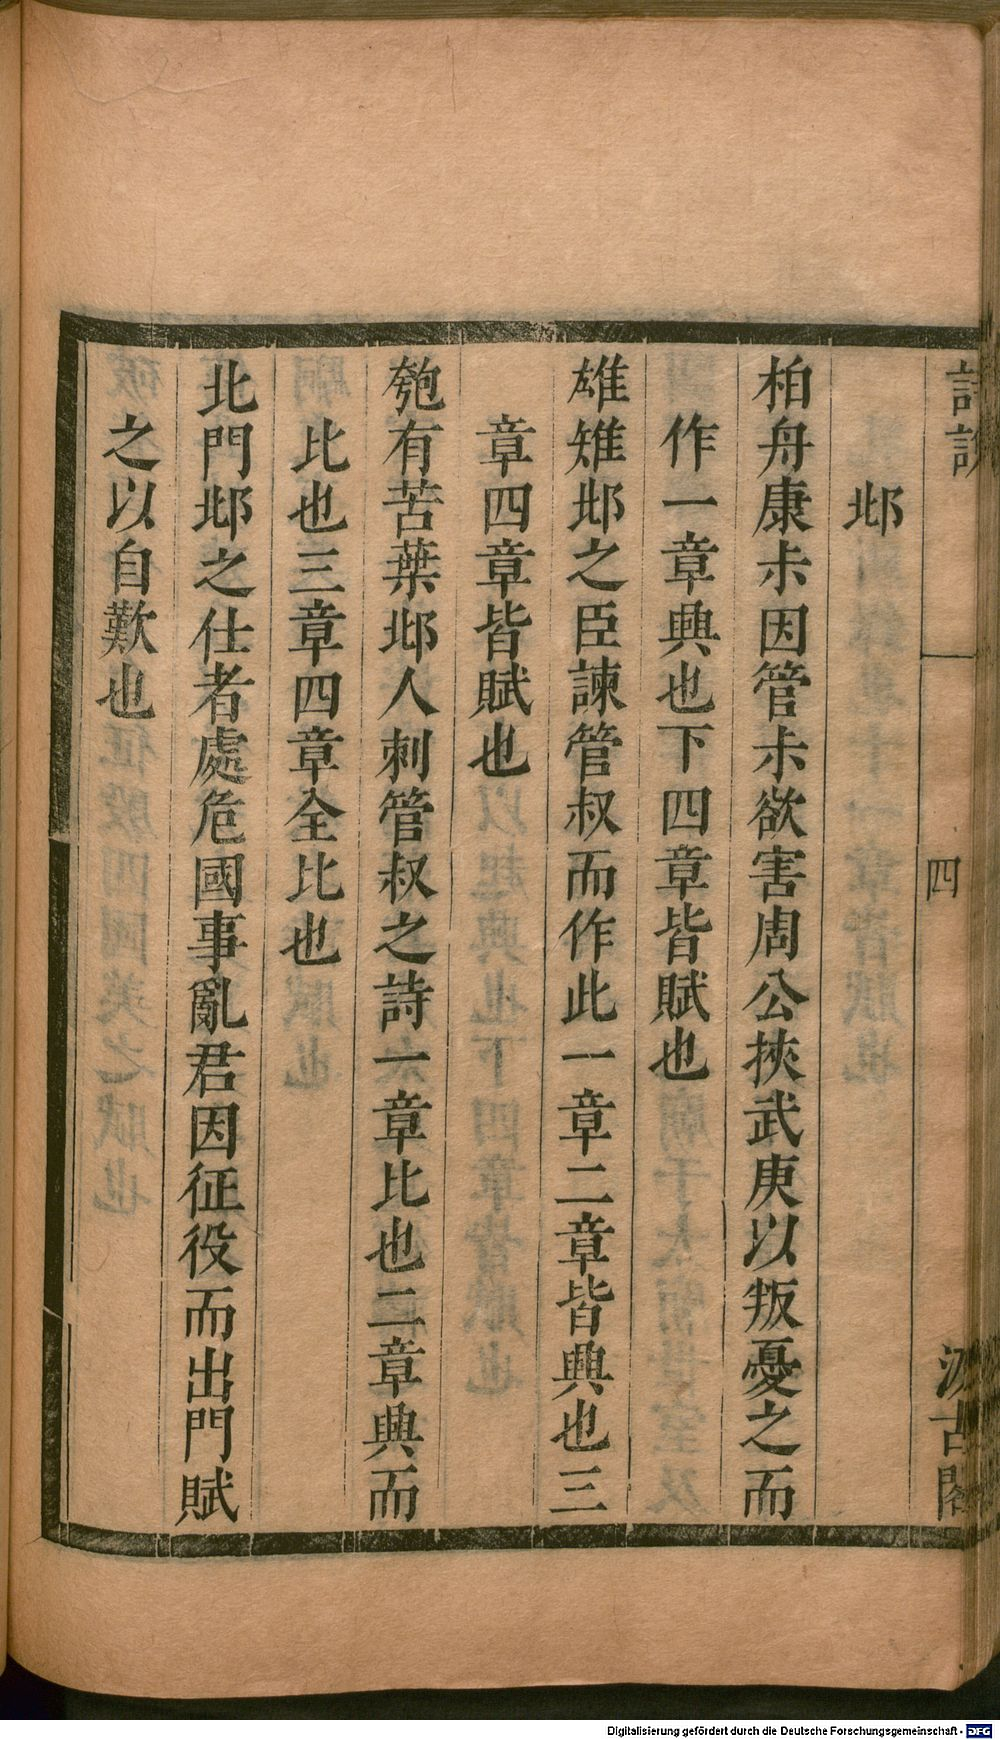 詩說
四
汲古閣
邶
柏舟康尗因管尗欲害周公挾武庚以叛憂之而
作一章興也下四章皆賦也
雄雉邶之臣諫管叔而作此一章二章皆興也三
章四章皆賦也
匏有苦葉邶人刺管叔之詩一章比也二章興而
比也三章四章全比也
北門邶之仕者處危國事亂君因征役而出門賦
之以自歎也
Digitalisierung gefördert durch die Deutsche Forschungsgemeinschaft - DFG